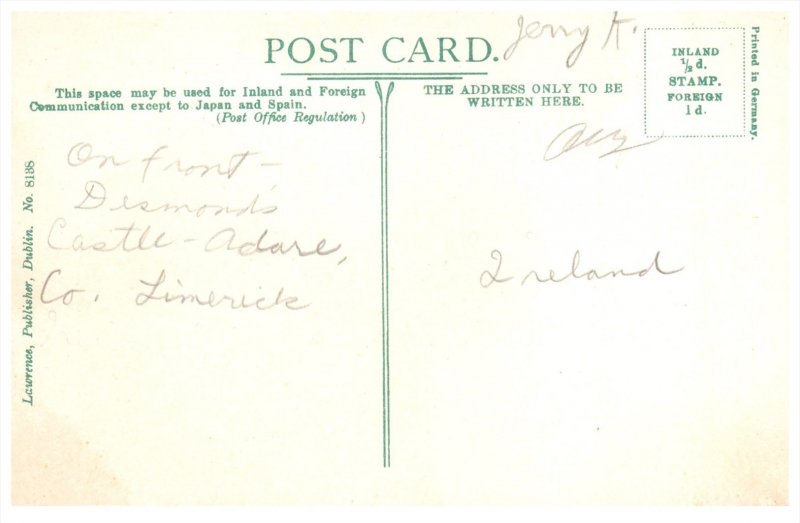 POST CARD.
Jerry K.
This space may be used for Inland and Foreign
Communication except to Japan and Spain.
(Post Office Regulation)
THE ADDRESS ONLY TO BE
WRITTEN HERE.
INLAND
½d.
STAMP.
FOREIGN
1d.
Printed in Germany.
On front-
Desmond's
Castle-Adare,
Co. Limerick
Ireland
Lawrence, Publisher, Dublin. No. 8138